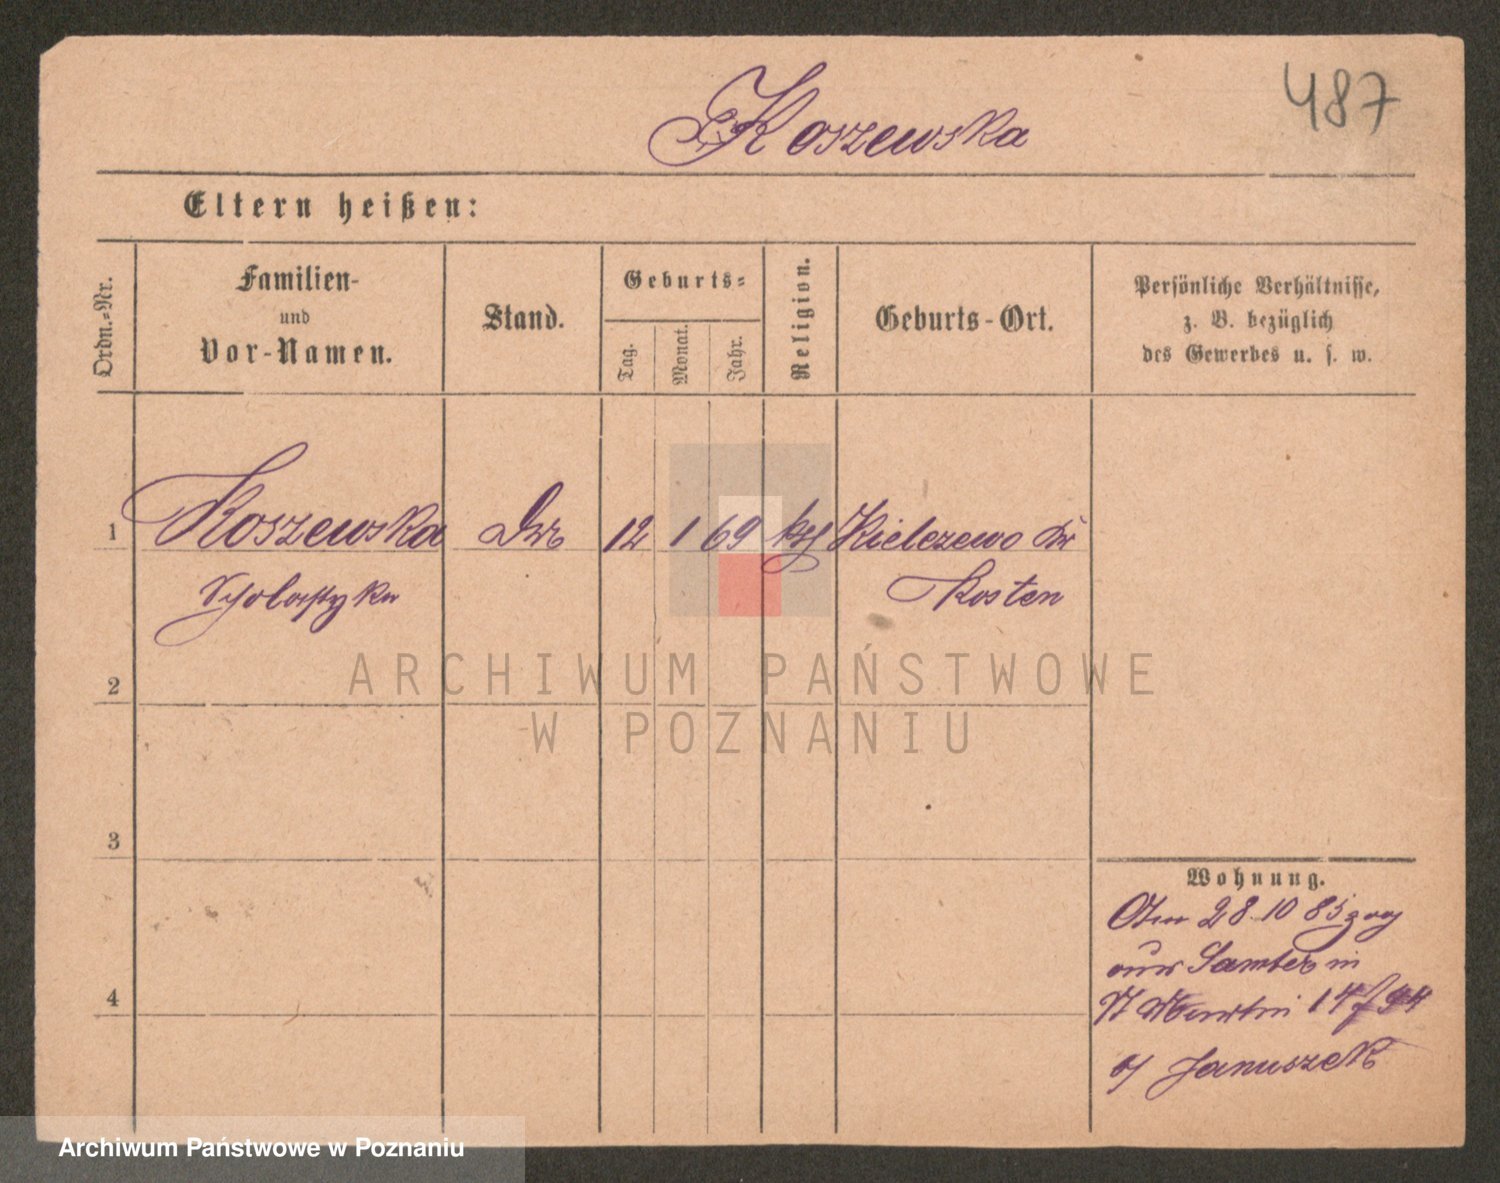 487
Koszewska
Eltern heißen:
Ordn.-Nr.
Familien-
und
Vor-Namen.
Stand.
Geburts-
Tag.
Monat.
Jahr.
Religion.
Geburts-Ort.
Persönliche Verhältnisse,
z. B. bezüglich
des Gewerbes u. s. w.
1
Koszewska 12 1 69 Kielczewo
Scholastyka Kosten
ARCHIWUM PAŃSTWOWE
W POZNANIU
2
3
4
Wohnung.
28 10 85 zog
aus Samter in
St Martin 14
b/ Januszek
Archiwum Państwowe w Poznaniu